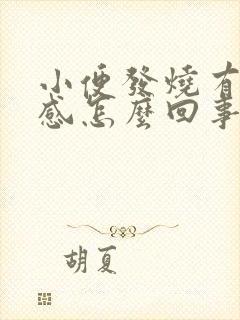 小便發燒有
感怎麼回事
胡夏